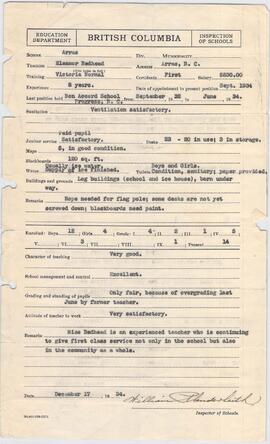 EDUCATION DEPARTMENT
BRITISH COLUMBIA
INSPECTION OF SCHOOLS
SCHOOL Arras
DIV. MUNICIPALITY
TEACHER Eleanor Redhead
ADDRESS Arras, B. C.
Training Victoria Normal
Certificate First Salary $830.00
Experience 8 years.
Date of appointment to present school Sept. 1934
Last position held Bon Accord School September 32 June 34.
Progress, B. C.
Ventilation Ventilation satisfactory.
Satisfactory. 23 - 20 in use; 3 in storage.
Maps 5, in good condition.
Blackboards 120 sq. ft.
Usually ice water. Boys and Girls.
Supply of ice finished. Condition, sanitary; paper provided
Buildings and grounds Log buildings (school and ice house), barn under
way.
Remarks Rope needed for flag pole; some desks are not yet
screwed down; blackboards need paint.
Enrolled: Boys 12 Girls 4
Present 14
Character of teaching Very good.
School management and control Excellent.
Grading and standing of pupils Only fair, because of overgrading last
June by former teacher.
Attitude of teacher to work Very satisfactory.
Remarks Miss Redhead is an experienced teacher who is continuing
to give first class service not only in the school but also
in the community as a whole.
Date December 17 1934.
Inspector of Schools.